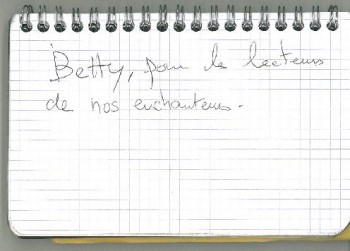 Betty, pour le lecteurs
de nos enchanteurs.